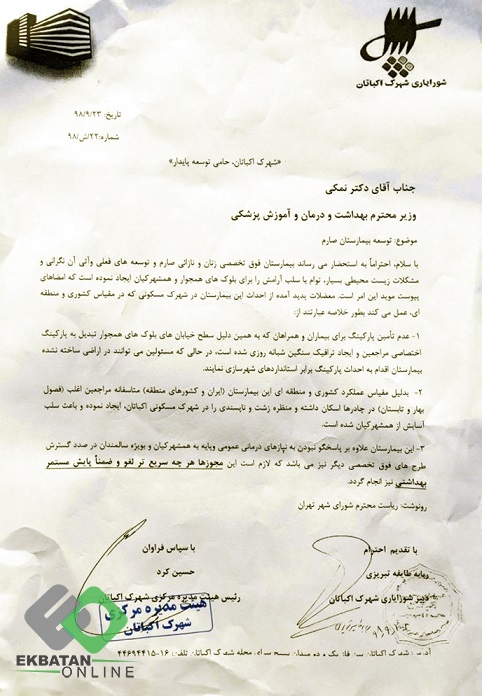 شورایاری شهرک اکباتان
تاریخ: ۹۸/۹/۲۳
شماره:۲۲/ش/۹۸
«شهرک اکباتان، حامی توسعه پایدار»
جناب آقای دکتر نمکی
وزیر محترم بهداشت و درمان و آموزش پزشکی
موضوع: توسعه بیمارستان صارم
با سلام، احتراماً به استحضار می رساند بیمارستان فوق تخصصی زنان و نازائی صارم و توسعه های فعلی وآتی آن نگرانی و
مشکلات زیست محیطی بسیار، توام با سلب آرامش را برای بلوک های همجوار و همشهرکیان ایجاد نموده است که امضاهای
پیوست موید این امر است. معضلات پدید آمده از احداث این بیمارستان در شهرک مسکونی که در مقیاس کشوری و منطقه
ای، عمل می کند بطور خلاصه عبارتند از:
۱- عدم تأمین پارکینگ برای بیماران و همراهان که به همین دلیل سطح خیابان های بلوک های همجوار تبدیل به پارکینگ
اختصاصی مراجعین و ایجاد ترافیک سنگین شبانه روزی شده است، در حالی که مسئولین می توانند در اراضی ساخته نشده
بیمارستان اقدام به احداث پارکینگ برابر استانداردهای شهرسازی نمایند.
۲- بدلیل مقیاس عملکرد کشوری و منطقه ای این بیمارستان (ایران و کشورهای منطقه) متاسفانه مراجعین اغلب (فصول
بهار و تابستان) در چادرها اسکان داشته و منظره زشت و ناپسندی را در شهرک مسکونی اکباتان، ایجاد نموده و باعث سلب
آسایش از همشهرکیان شده است.
۳- این بیمارستان علاوه بر پاسخگو نبودن به نیازهای درمانی عمومی وپایه به همشهرکیان و بویژه سالمندان در صدد گسترش
طرح های فوق تخصصی دیگر نیز می باشد که لازم است این مجوزها هر چه سریع تر لغو و ضمناً پایش مستمر
بهداشتی نیز انجام گردد.
رونوشت: ریاست محترم شورای شهر تهران
با تقدیم احترام
ربابه طایفه تبریزی
دبیر شورایاری شهرک اکباتان
با سپاس فراوان
حسین کرد
رئیس هیئت مدیره مرکزی شهرک اکباتان
هیئت مدیره مرکزی
شهرک اکباتان
تلفن: ۱۶-۴۴۶۹۴۴۱۵
EKBATAN
ONLINE